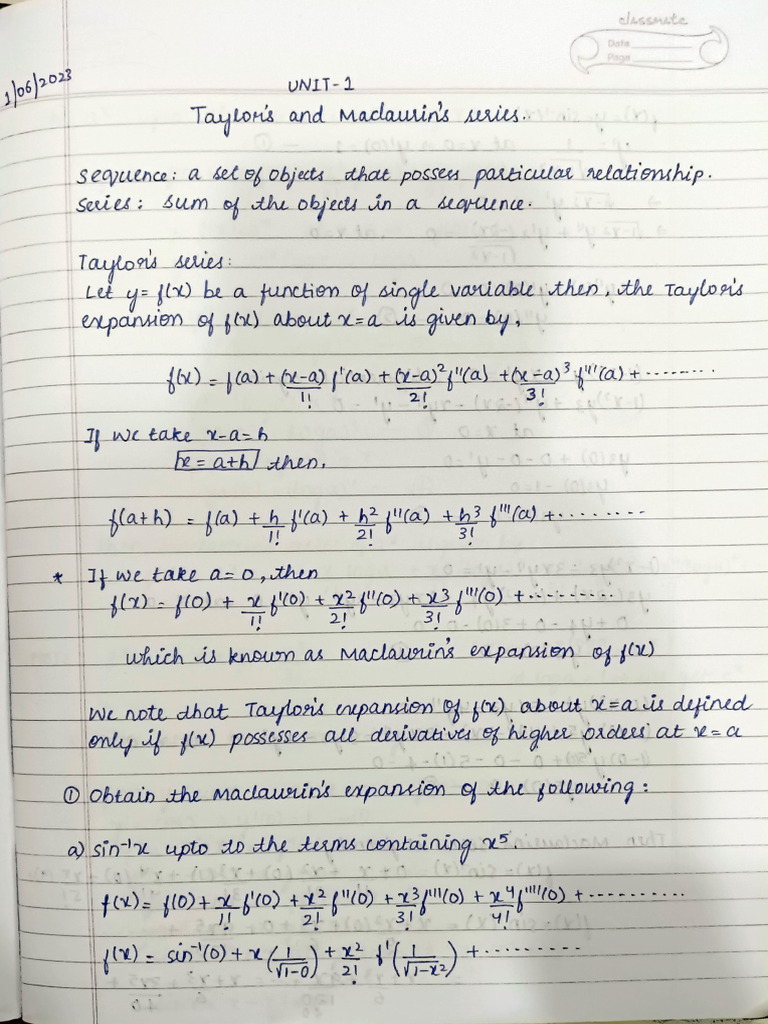 classmate
Date
Page
1/06/2023
UNIT-1
Taylor's and Maclaurin's series.
Sequence: a set of objects that possess particular relationship.
Series: sum of the objects in a sequence.
Taylor's series:
Let y= f(x) be a function of single variable then, the Taylor's
expansion of f(x) about x=a is given by,
f(x) = f(a) + (x-a)/1! f'(a) + (x-a)²/2! f''(a) + (x-a)³/3! f'''(a) + ........
If we take x-a=h
x = a+h then,
f(a+h) = f(a) + h/1! f'(a) + h²/2! f''(a) + h³/3! f'''(a) + ........
* If we take a=0, then
f(x) = f(0) + x/1! f'(0) + x²/2! f''(0) + x³/3! f'''(0) + .........
which is known as Maclaurin's expansion of f(x)
We note that Taylor's expansion of f(x) about x=a is defined
only if f(x) possesses all derivatives of higher orders at x=a
① Obtain the Maclaurin's expansion of the following:
a) sin⁻¹x upto to the terms containing x⁵.
f(x) = f(0) + x/1! f'(0) + x²/2! f''(0) + x³/3! f'''(0) + x⁴/4! f''''(0) + ..........
f(x) = sin⁻¹(0) + x(1/√1-0) + x²/2! f'(1/√1-x²) + .........